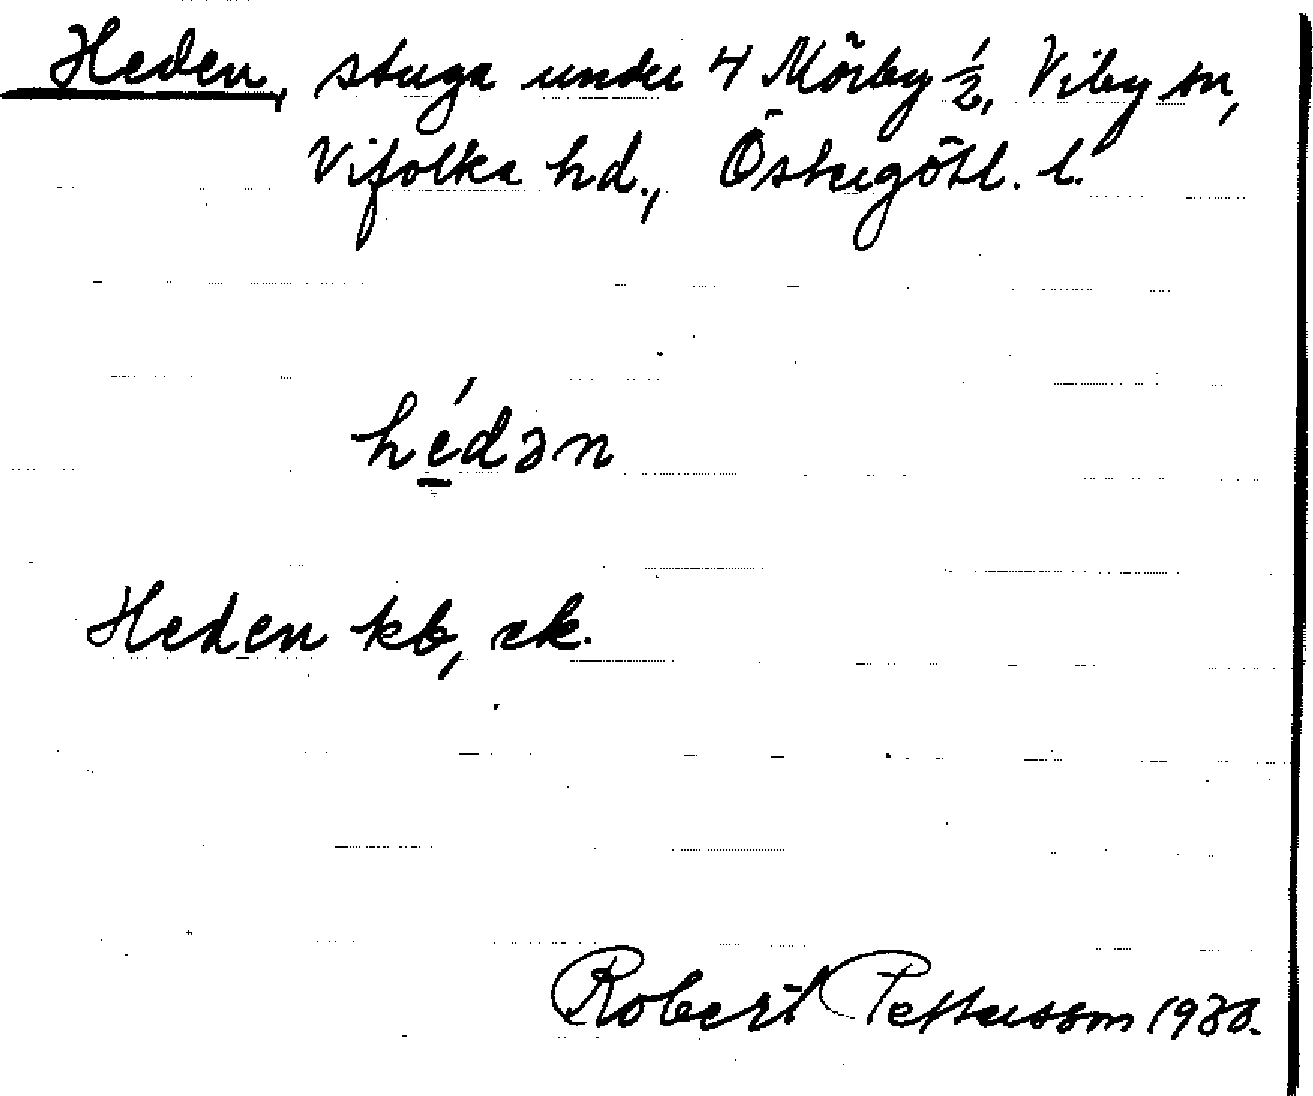 Heden, stuga under 4 Mörby ½, Viby sn,
Vifolka hd., Östergötl. l.
hédən
Heden kb, ek.
Robert Pettersson 1930.